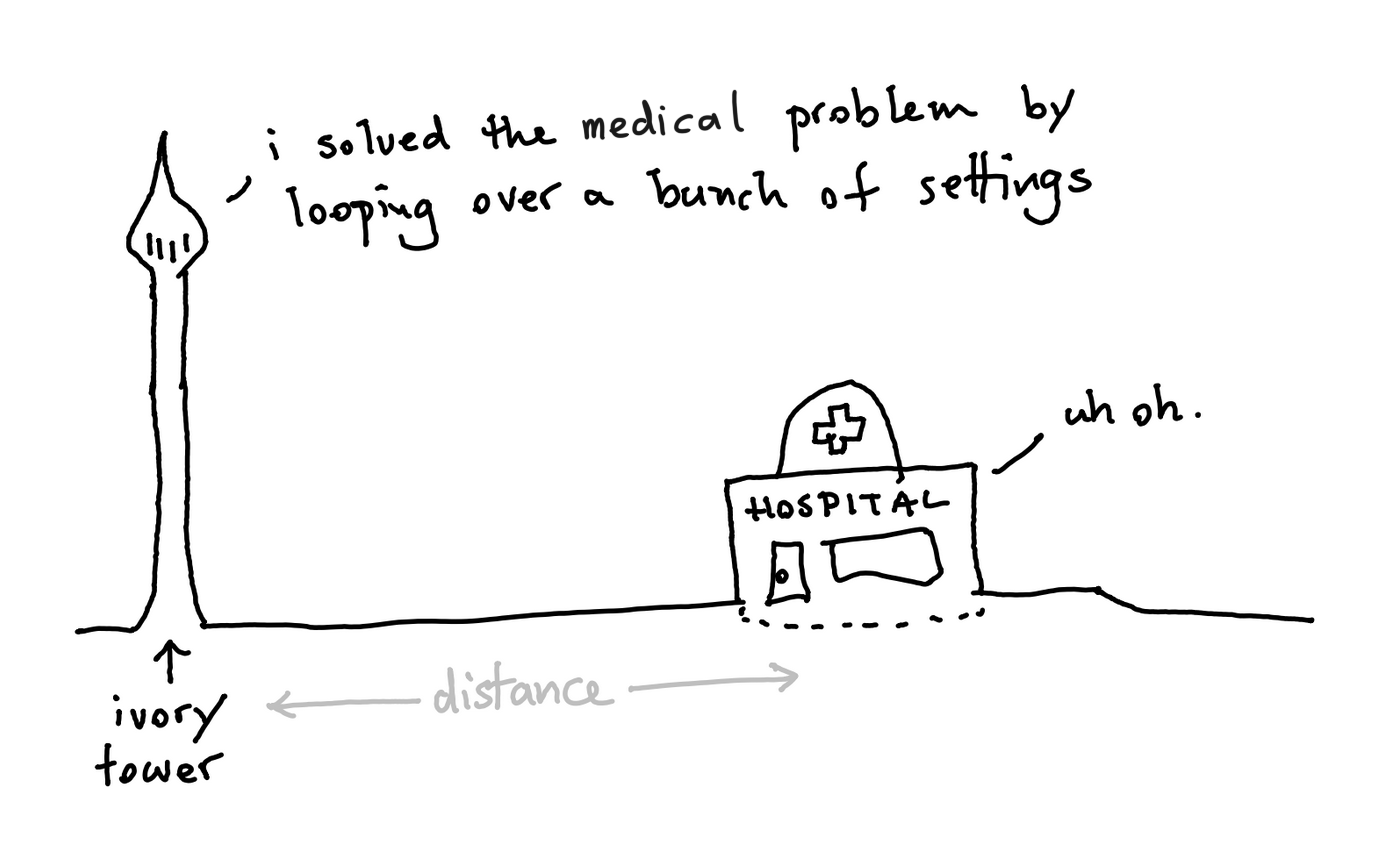 i solved the medical problem by
looping over a bunch of settings
uh oh.
HOSPITAL
distance
ivory
tower